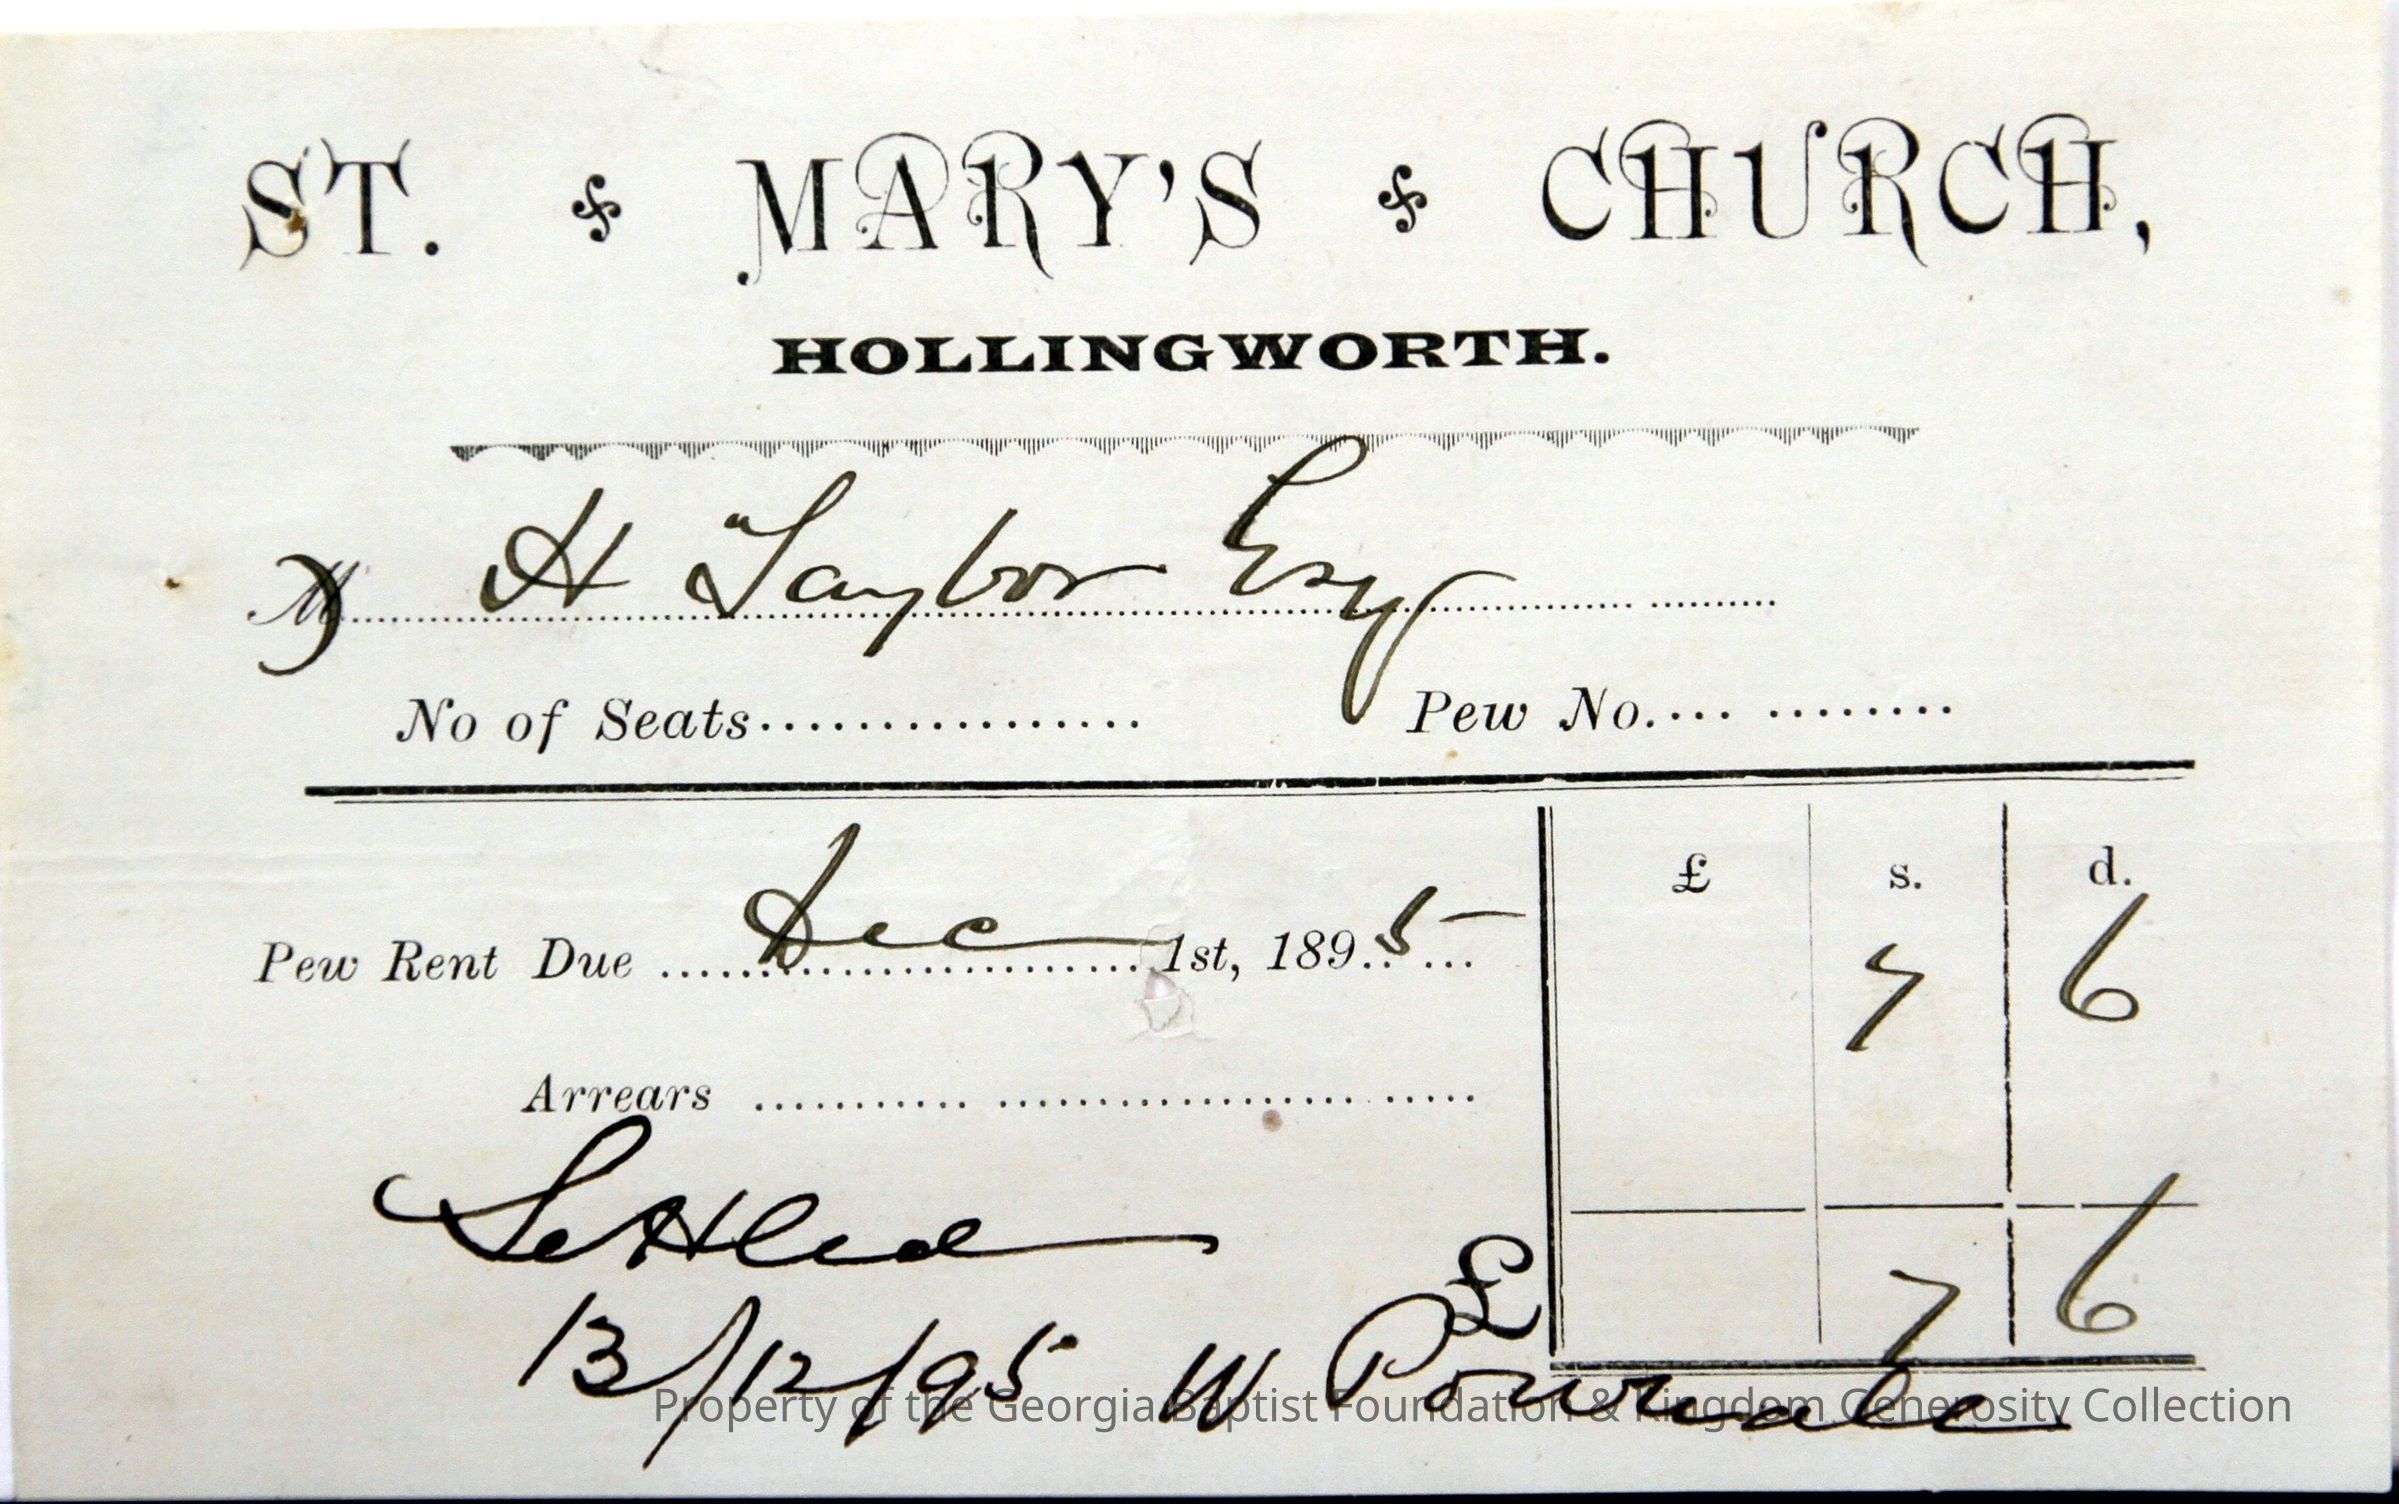 ST. MARY'S CHURCH,
HOLLINGWORTH.
M H Taylor Esq
No of Seats................ Pew No............
Pew Rent Due Dec 1st, 1895
£ s. d.
7 6
Arrears ..............................
Settled
£ 7 6
13/12/95 W
Property of the Georgia Baptist Foundation & Kingdom Generosity Collection